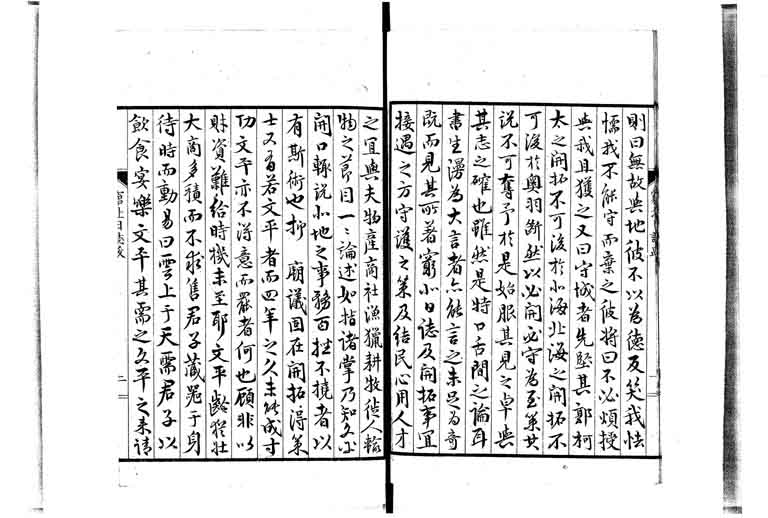 則曰無故與地彼不以為德反笑我怯
懦我不能守而棄之彼將曰不必煩授
與我且獲之又曰守城者先堅其郭柯
太之開拓不可後於小海北海之開拓不
可後於奧羽斷然以必開必守為至策其
說不可奪予於是始服其見之卓與
其志之確也雖然是特口舌間之論耳
書生漫為大言者亦能言之未足為奇
既而見其所著窮北日誌及開拓事宜
接遇之方守護之策及結民心用人才
之宜與夫物產商社漁獵耕牧徙人輸
物之節目一一論述如指諸掌乃知文平
開口輒說北地之事務百挫不撓者以
有斯術也抑 廟議固在開拓得策
士又有若文平者而四年之久未能成寸
功文平亦不得意而罷者何也顧非以
財資難給時機未至耶文平齡猶壯
大商多積而不求售君子藏器于身
待時而動易曰雲上于天需君子以
飲食宴樂文平其需之文平之來請